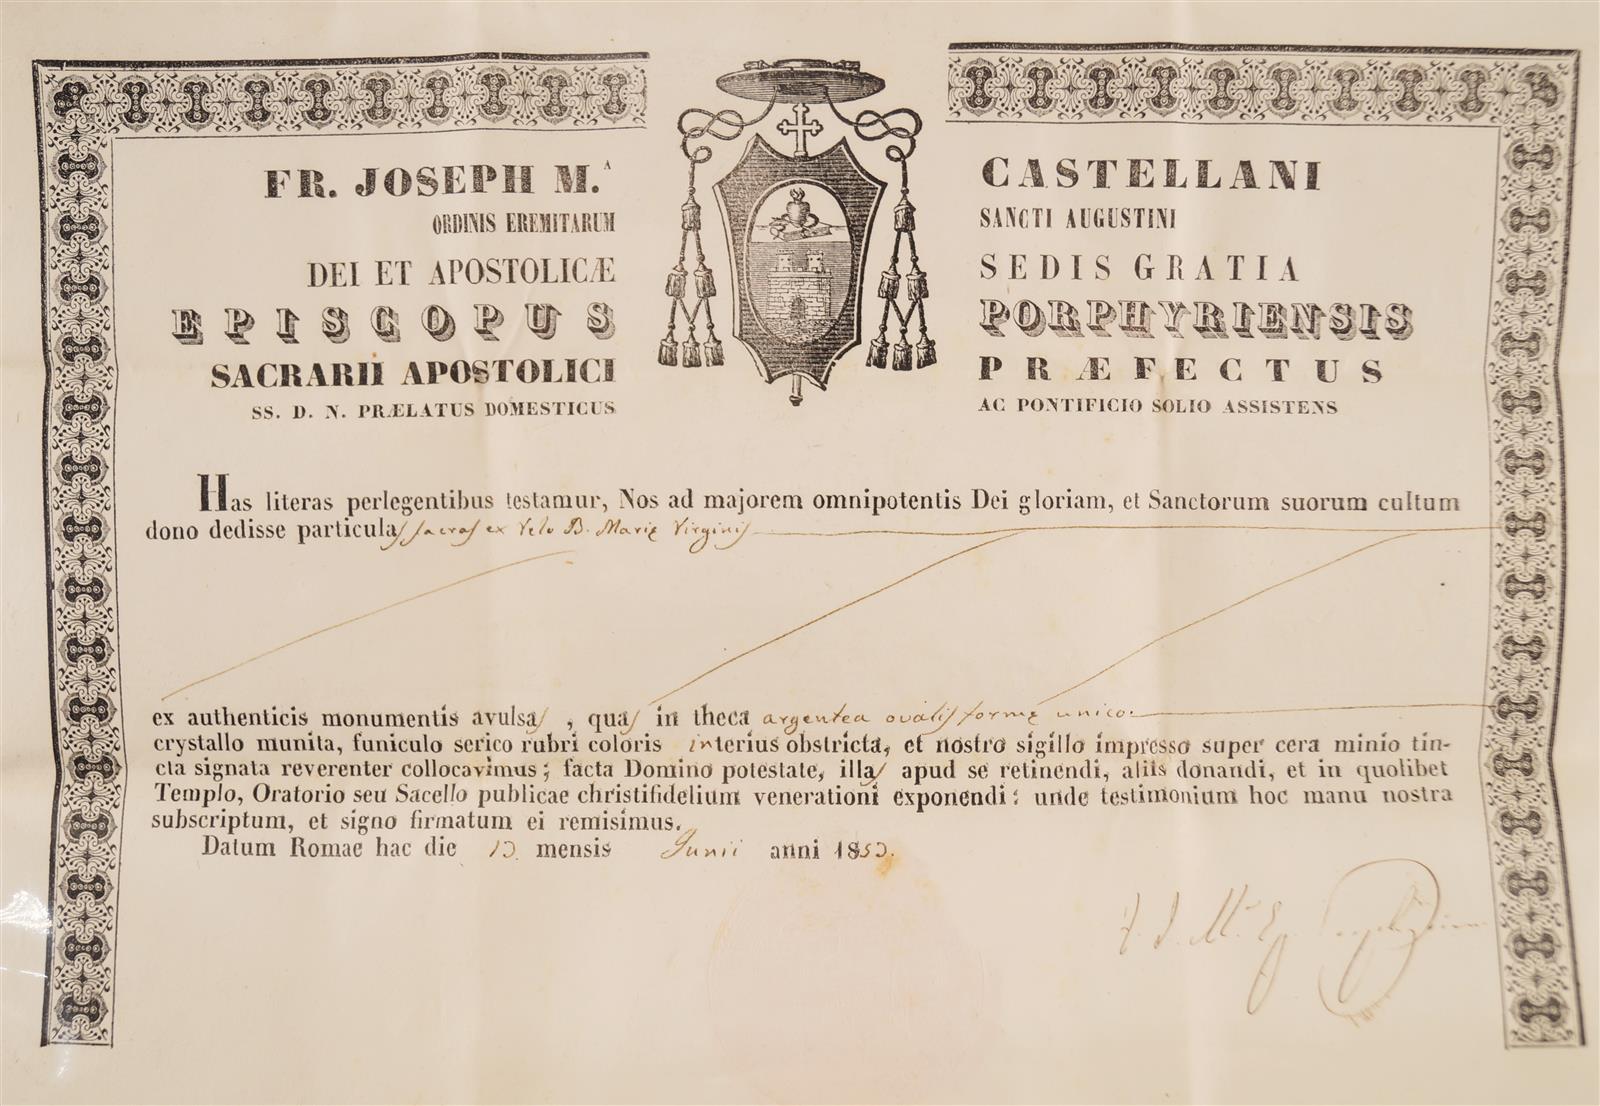 FR. JOSEPH M.ᴬ CASTELLANI
ORDINIS EREMITARUM SANCTI AUGUSTINI
DEI ET APOSTOLICÆ SEDIS GRATIA
EPISCOPUS PORPHYRIENSIS
SACRARII APOSTOLICI PRÆFECTUS
SS. D. N. PRÆLATUS DOMESTICUS AC PONTIFICIO SOLIO ASSISTENS
Has literas perlegentibus testamur, Nos ad majorem omnipotentis Dei gloriam, et Sanctorum suorum cultum
dono dedisse particulas sacras ex Velo B. Marię Virginis
ex authenticis monumentis avulsas, quas in theca argentea ovalis formę unico
crystallo munita, funiculo serico rubri coloris interius obstricta, et nostro sigillo impresso super cera minio tin-
cta signata reverenter collocavimus; facta Domino potestate, illas apud se retinendi, aliis donandi, et in quolibet
Templo, Oratorio seu Sacello publicae christifidelium venerationi exponendi: unde testimonium hoc manu nostra
subscriptum, et signo firmatum ei remisimus.
Datum Romae hac die 13 mensis Junii anni 1853.
F. J. M.ª Ep.